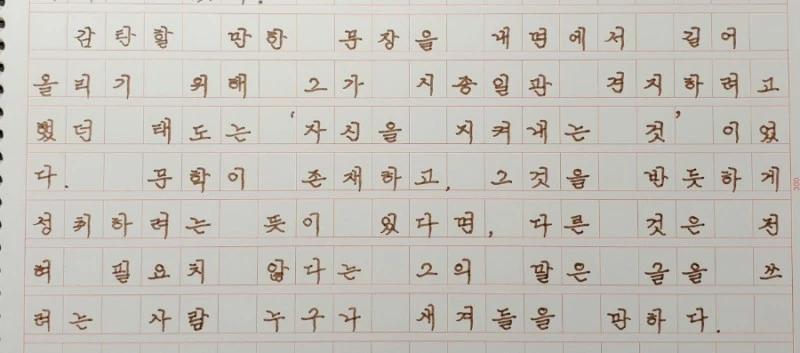 감탄할 만한 문장을 내면에서 길어
올리기 위해 그가 시종일관 견지하려고
했던 태도는 '자신을 지켜내는 것' 이었
다. 문학이 존재하고, 그것을 반듯하게
성취하려는 뜻이 있다면, 다른 것은 전
혀 필요치 않다는 그의 말은 글을 쓰
려는 사람 누구나 새겨들을 만하다.